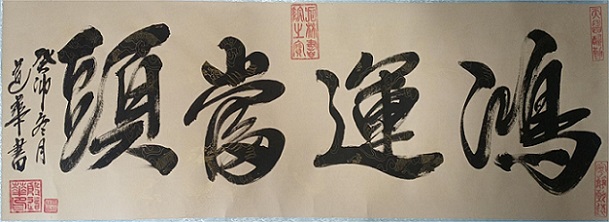 鴻運當頭
癸卯冬月
道華書